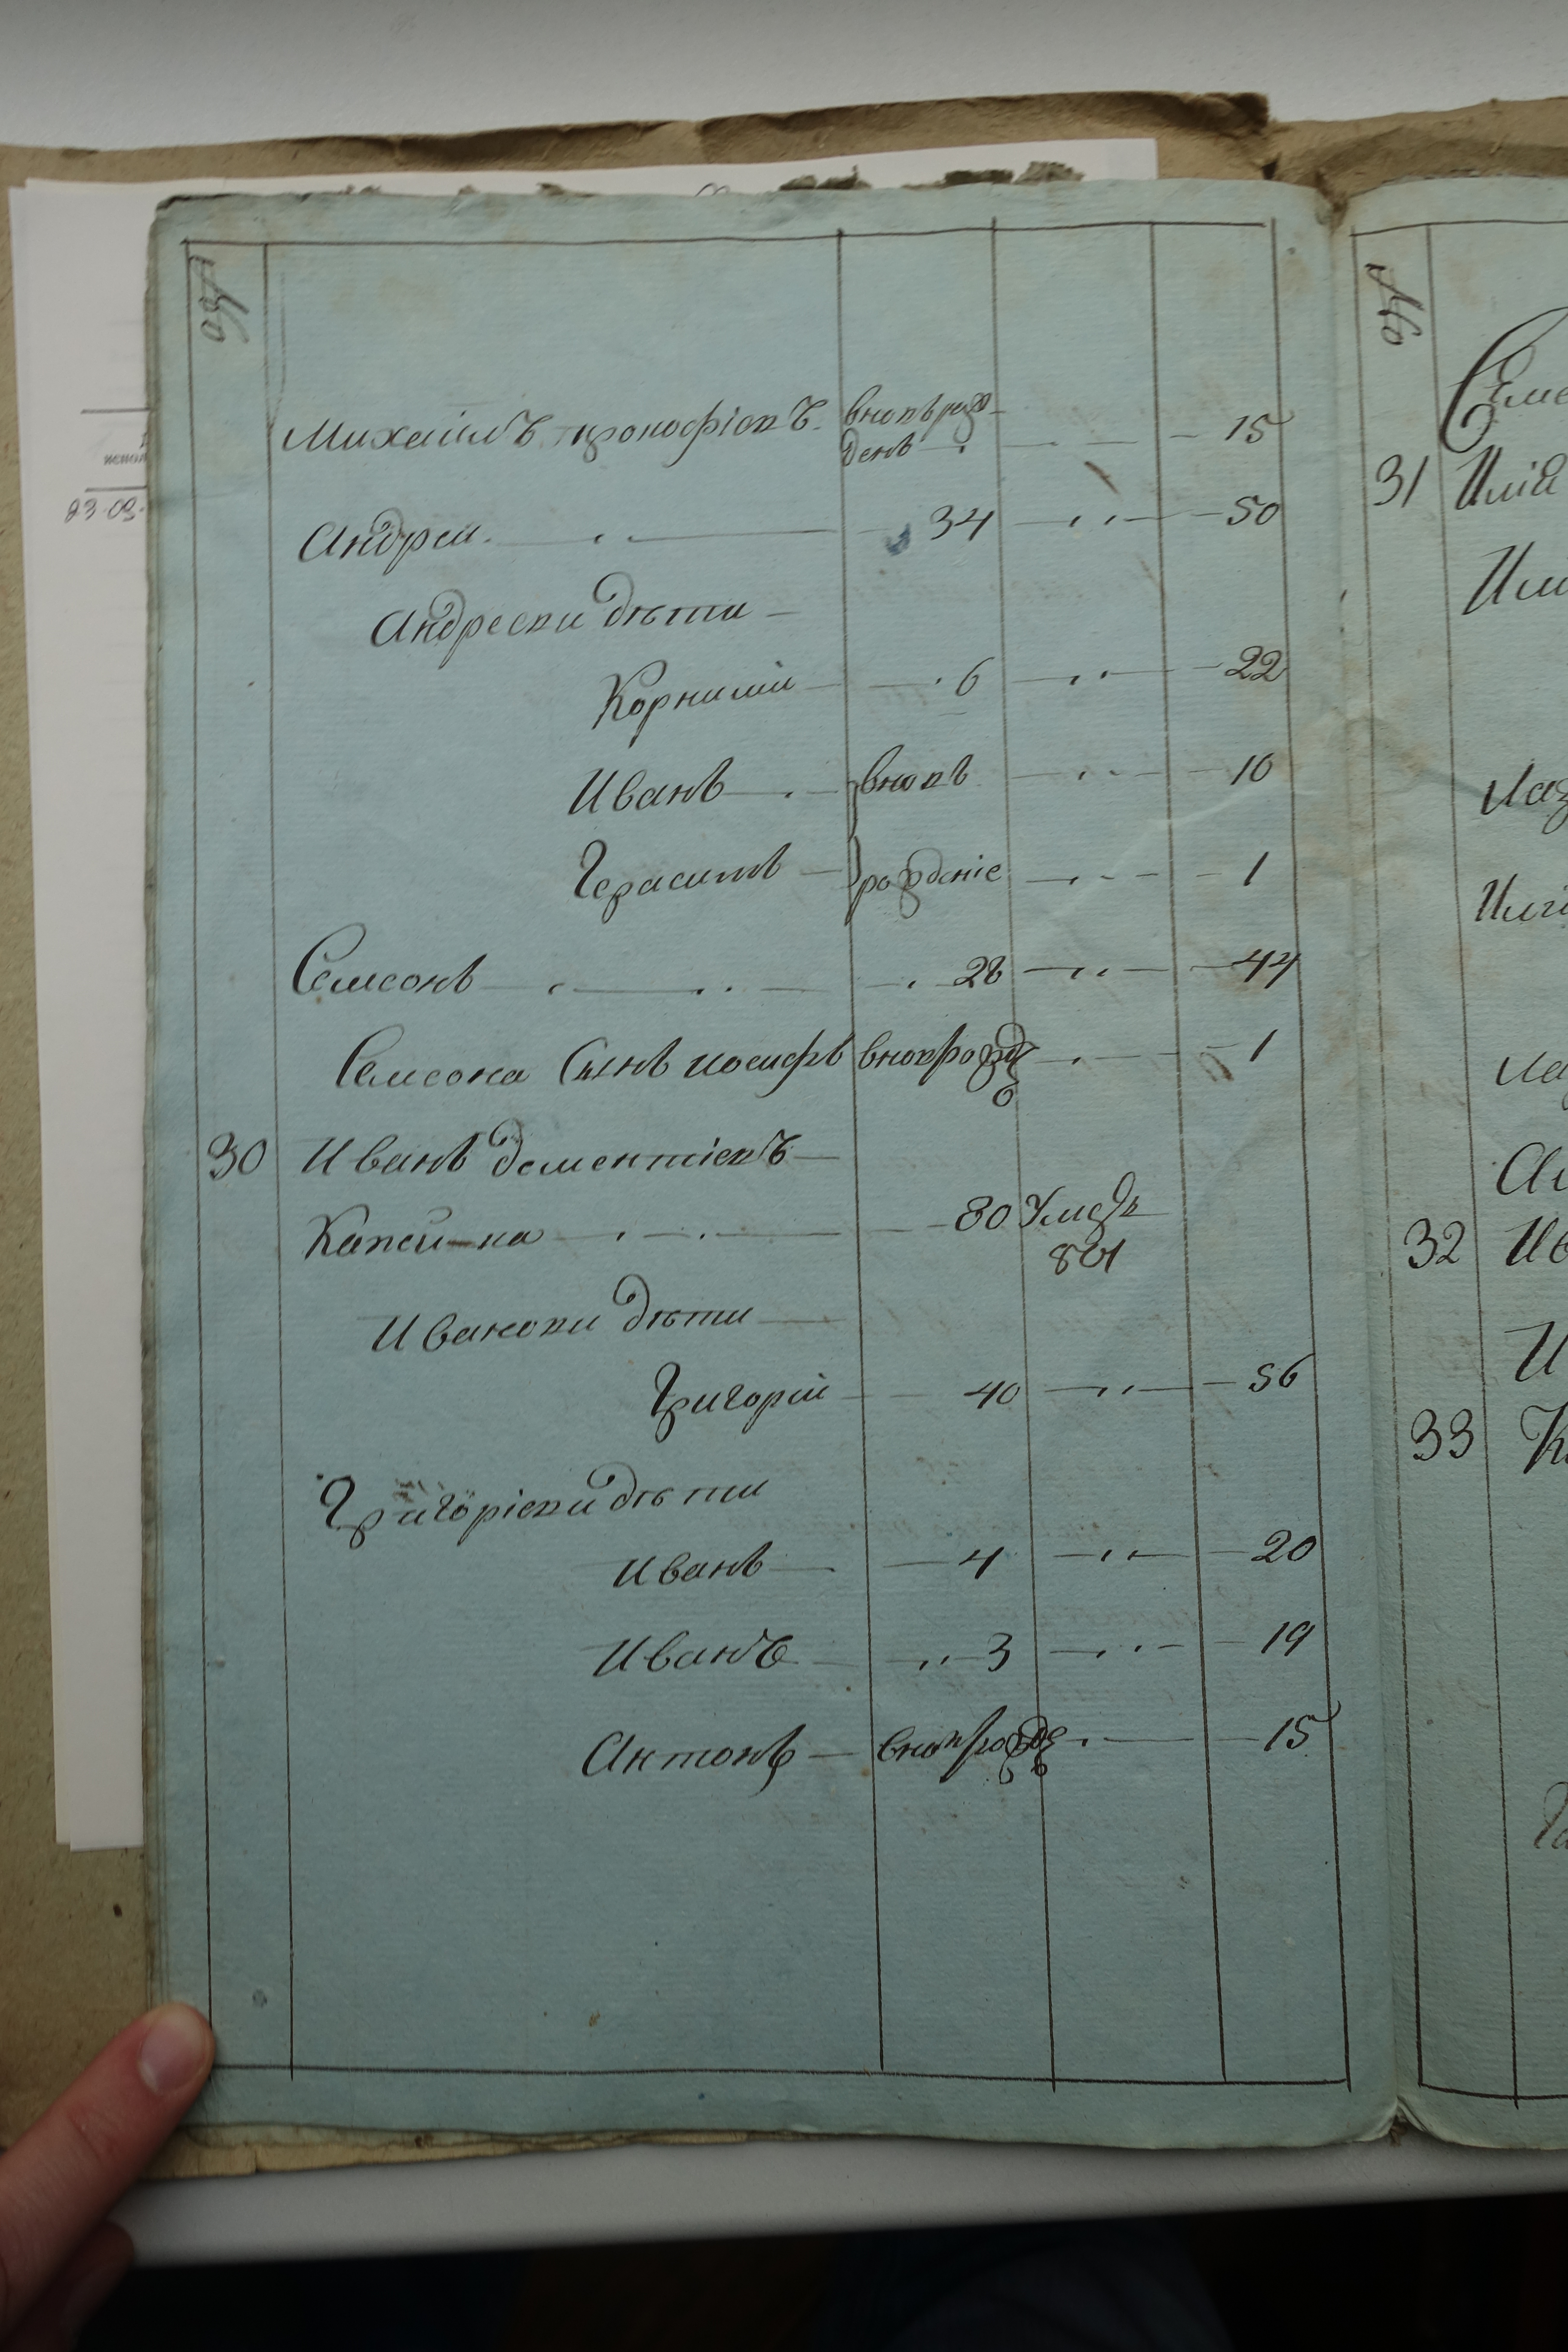 №
Михайлъ прокофіевъ вновь рож
денъ 15
Андрей 34 50
Андреевы дѣти
Корнилій 6 22
Иванъ вновь 10
Герасимъ рожденіе 1
Семеонъ 28 44
Семеона Сынъ иосифъ вновьрожд 1
30 Иванъ дементіевъ
Капей-ка 80 Умеръ
801
Ивановы дѣти
Григорій 40 56
Григоріевы дѣти
Иванъ 4 20
Иванъ 3 19
Антонъ вновьрожд 15
№
31 Илія
32
33
23.09.